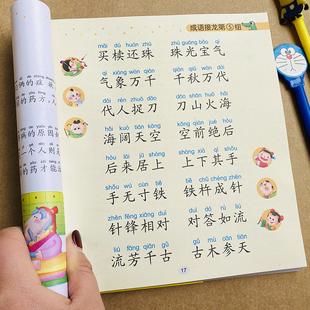 成语接龙第5组
mǎi dú huán zhū zhū guāng bǎo qì
买椟还珠 珠光宝气
qì xiàng wàn qiān qiān qiū wàn dài
气象万千 千秋万代
dài rén zhuō dāo dāo shān huǒ hǎi
代人捉刀 刀山火海
hǎi kuò tiān kōng kōng qián jué hòu
海阔天空 空前绝后
hòu lái jū shàng shàng xià qí shǒu
后来居上 上下其手
shǒu wú cùn tiě tiě chǔ chéng zhēn
手无寸铁 铁杵成针
zhēn fēng xiāng duì duì dá rú liú
针锋相对 对答如流
liú fāng qiān gǔ gǔ mù cān tiān
流芳千古 古木参天
17
的药方,
病的原因
一个人则
的药才能